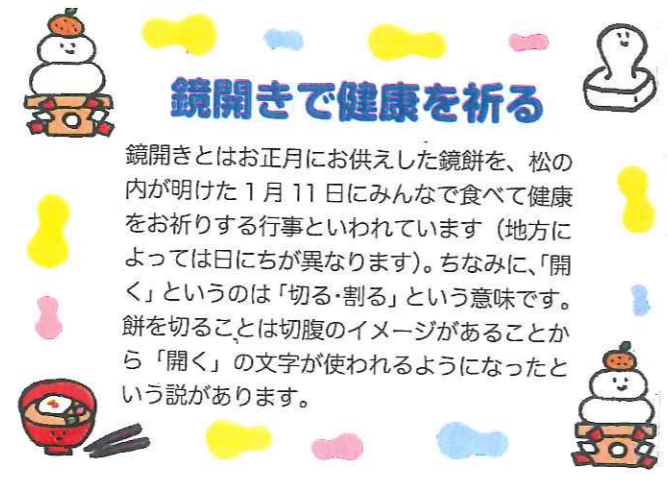 鏡開きで健康を祈る
鏡開きとはお正月にお供えした鏡餅を、松の
内が明けた1月11日にみんなで食べて健康
をお祈りする行事といわれています（地方に
よっては日にちが異なります）。ちなみに、「開
く」というのは「切る・割る」という意味です。
餅を切ることは切腹のイメージがあることか
ら「開く」の文字が使われるようになったと
いう説があります。